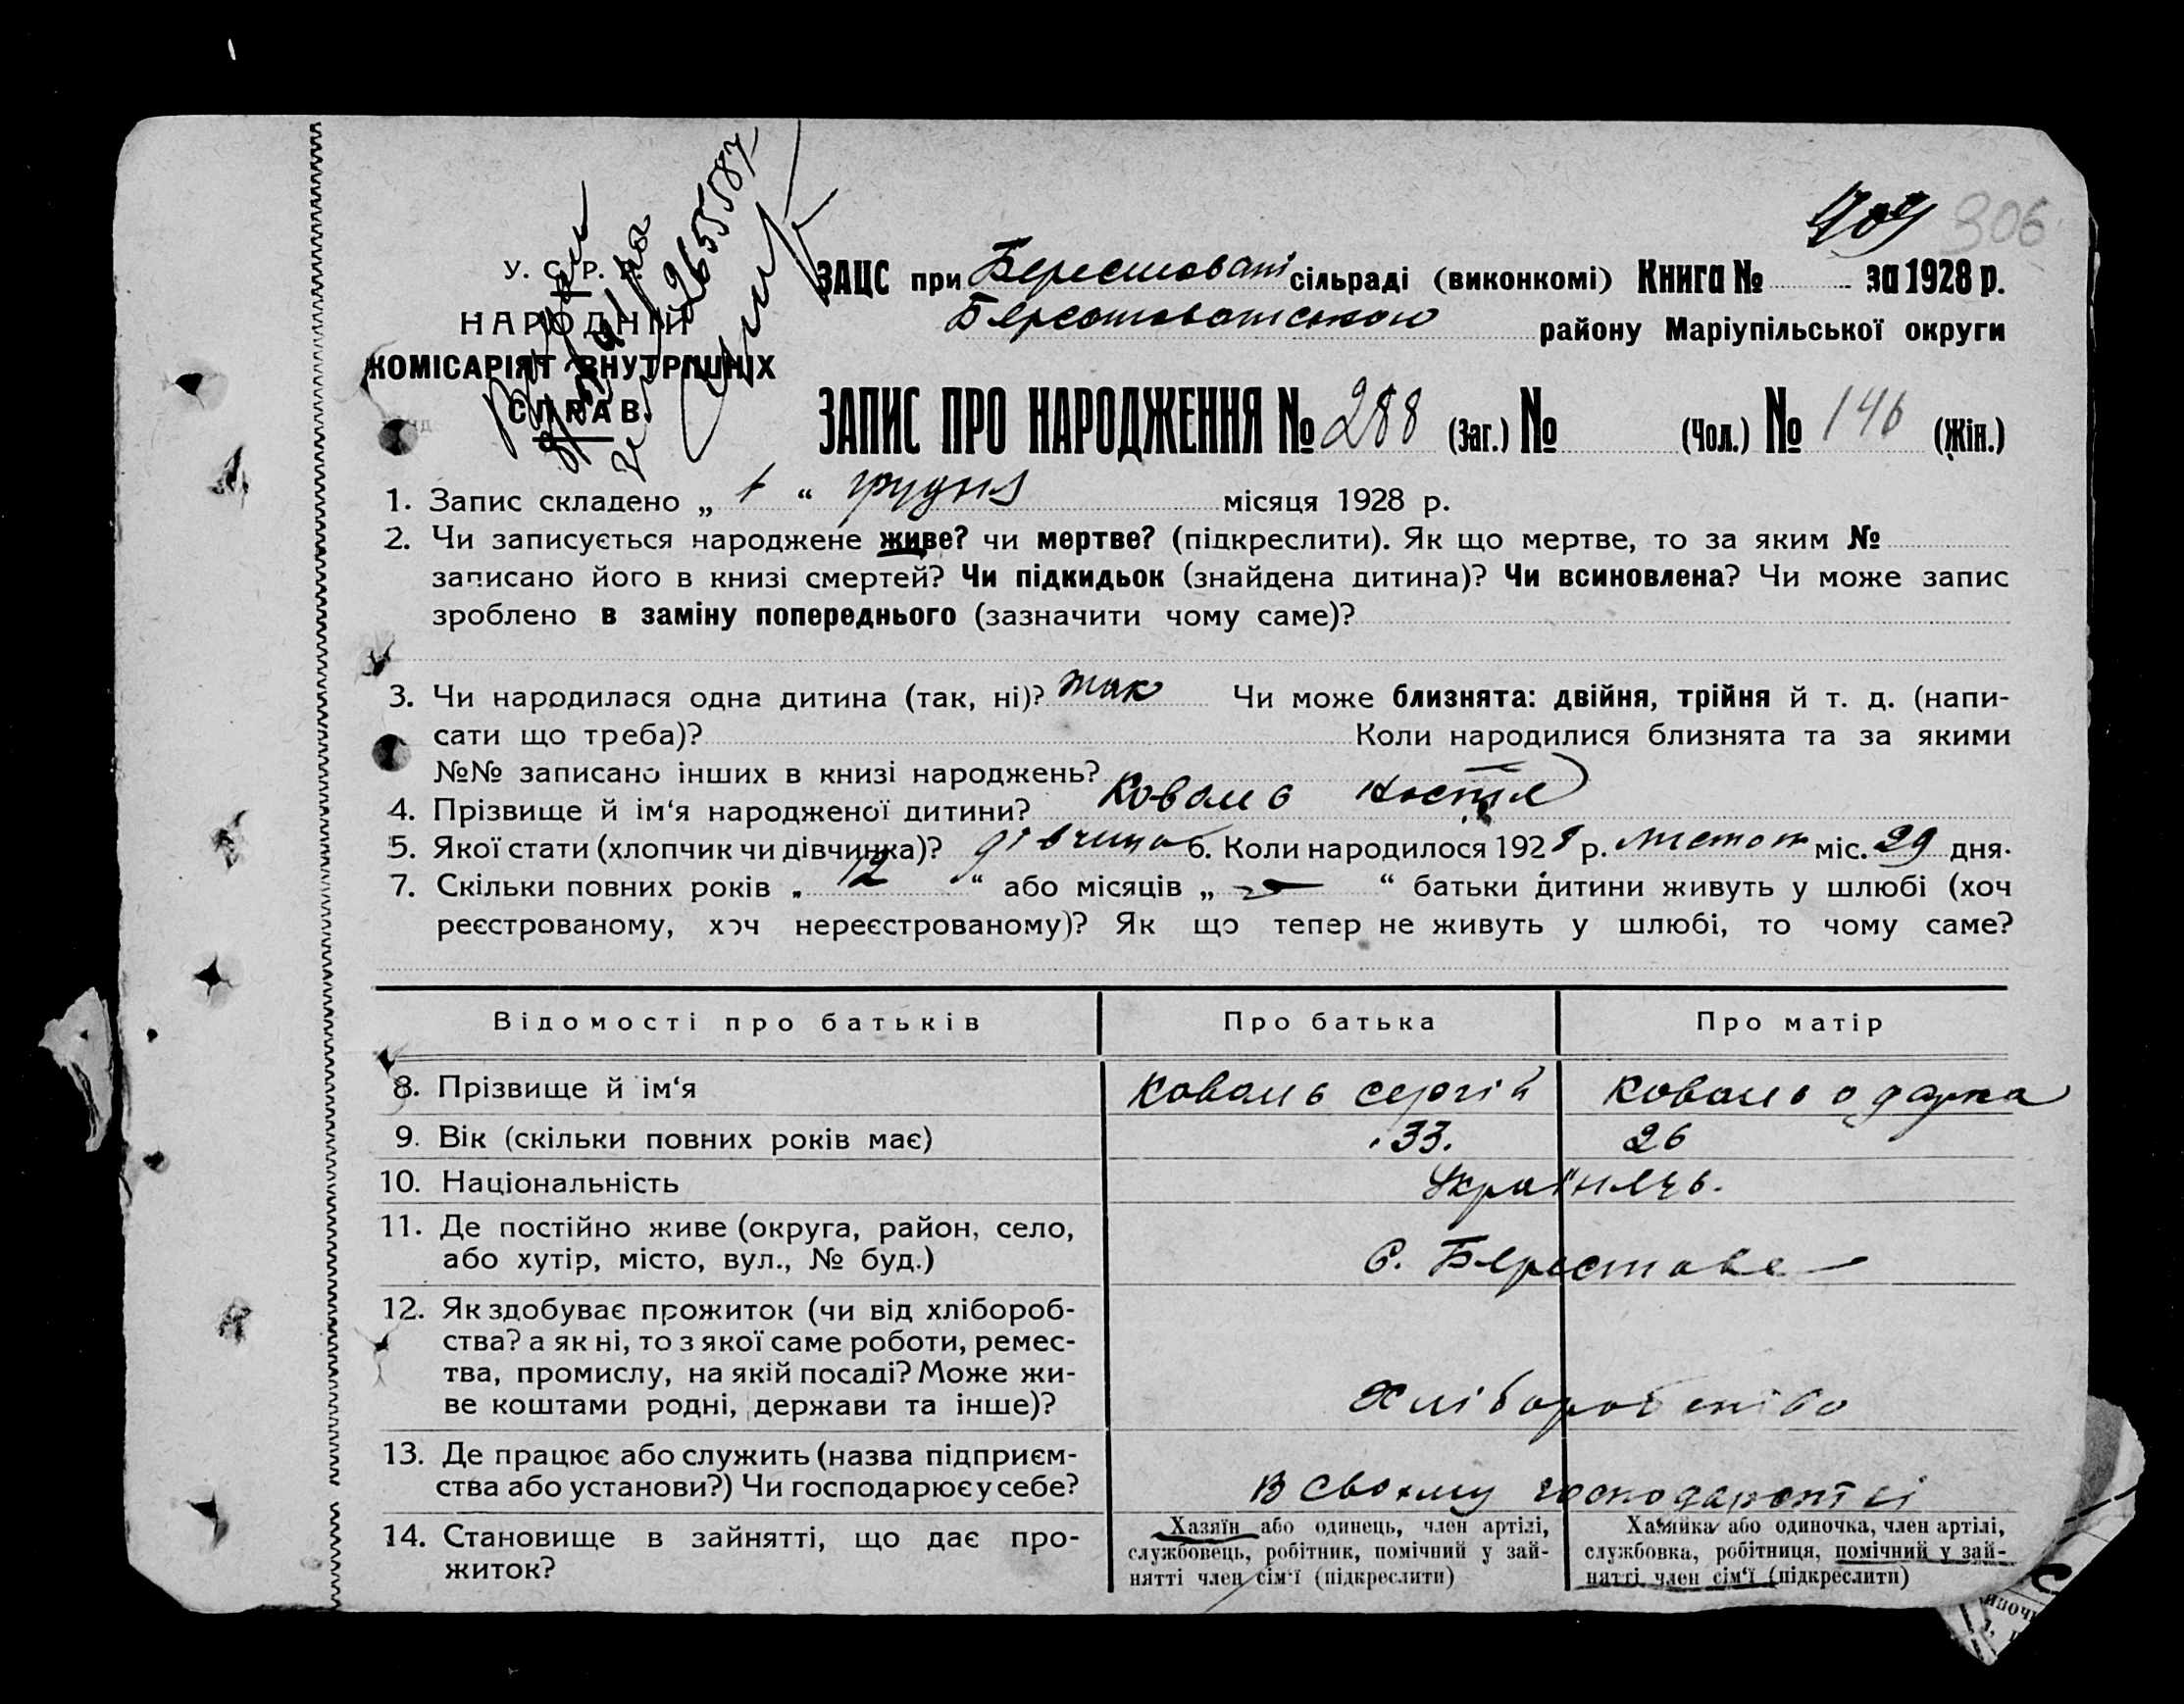 306
У. С. Р. Р.
ЗАЦС при Берестоват сільраді (виконкомі) Книга № за 1928 р.
НАРОДНІЙ
районy Маріупільської округи
КОМІСАРІЯТ ВНУТРІШНІХ
СПРАВ.
ЗАПИС ПРО НАРОДЖЕННЯ № 288 (Заг.) № (Чол.) № 146 (Жін.)
1. Запис складено „ 1 “ грудня місяця 1928 р.
2. Чи записується народжене живе? чи мертве? (підкреслити). Як що мертве, то за яким №
записано його в книзі смертей? Чи підкидьок (знайдена дитина)? Чи всиновлена? Чи може запис
зроблено в заміну попереднього (зазначити чому саме)?
3. Чи народилася одна дитина (так, ні)? так Чи може близнята: двійня, трійня й т. д. (напи-
сати що треба)? Коли народилися близнята та за якими
№№ записано інших в книзі народжень?
4. Прізвище й ім‘я народженої дитини? Коваль
5. Якої стати (хлопчик чи дівчинка)? дівчина 6. Коли народилося 1928 р. листоп міс. 29 дня.
7. Скільки повних років „ 12 “ або місяців „ — “ батьки дитини живуть у шлюбі (хоч
реєстрованому, хоч нереєстрованому)? Як що тепер не живуть у шлюбі, то чому саме?
Відомості про батьків Про батька Про матір
8. Прізвище й ім‘я Коваль Сергій Коваль Одарка
9. Вік (скільки повних років має) 33. 26
10. Національність Українць.
11. Де постійно живе (округа, район, село,
або хутір, місто, вул., № буд.) С. Берестове
12. Як здобуває прожиток (чи від хлібороб-
ства? а як ні, то з якої саме роботи, ремес-
тва, промислу, на якій посаді? Може жи-
ве коштами родні, держави та інше)? Хліборобство
13. Де працює або служить (назва підприєм-
ства або установи?) Чи господарює у себе? В своєму господарстві
14. Становище в зайнятті, що дає про-
житок?
Хазяїн або одинець, член артілі,
службовець, робітник, помічний у зай-
нятті член сім‘ї (підкреслити)
Хазяйка або одиночка, член артілі,
службовка, робітниця, помічний у зай-
нятті член сім‘ї (підкреслити)